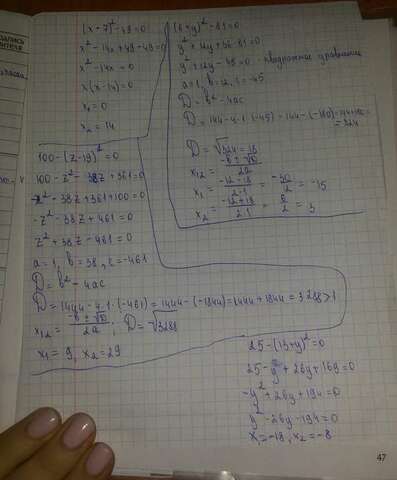 (x-7)²-49=0
x²-14x+49-49=0
x²-14x=0
x(x-14)=0
x₁=0
x₂=14
(6+y)²-81=0
y²+12y+36-81=0
y²+12y-45=0 - квадратное уравнение
a=1, b=12, c=-45
D=b²-4ac
D=144-4·1·(-45)=144-(-180)=144+180=
=324
D=√324=18
x₁,₂=(-b±√D)/2a
x₁=(-12-18)/2·1=-30/2=-15
x₂=(-12+18)/2·1=6/2=3
100-(z-19)²=0
100-z²-38z+361=0
-z²-38z+361+100=0
-z²-38z+461=0
z²+38z-461=0
a=1, b=38, c=-461
D=b²-4ac
D=1444-4·1·(-461)=1444-(-1844)=1444+1844=3288>1
x₁,₂=(-b±√D)/2a; D=√3288
x₁=9, x₂=29
25-(13+y)²=0
25-y²+26y+169=0
-y²+26y+194=0
y²-26y-194=0
x₁=-18, x₂=-8
47